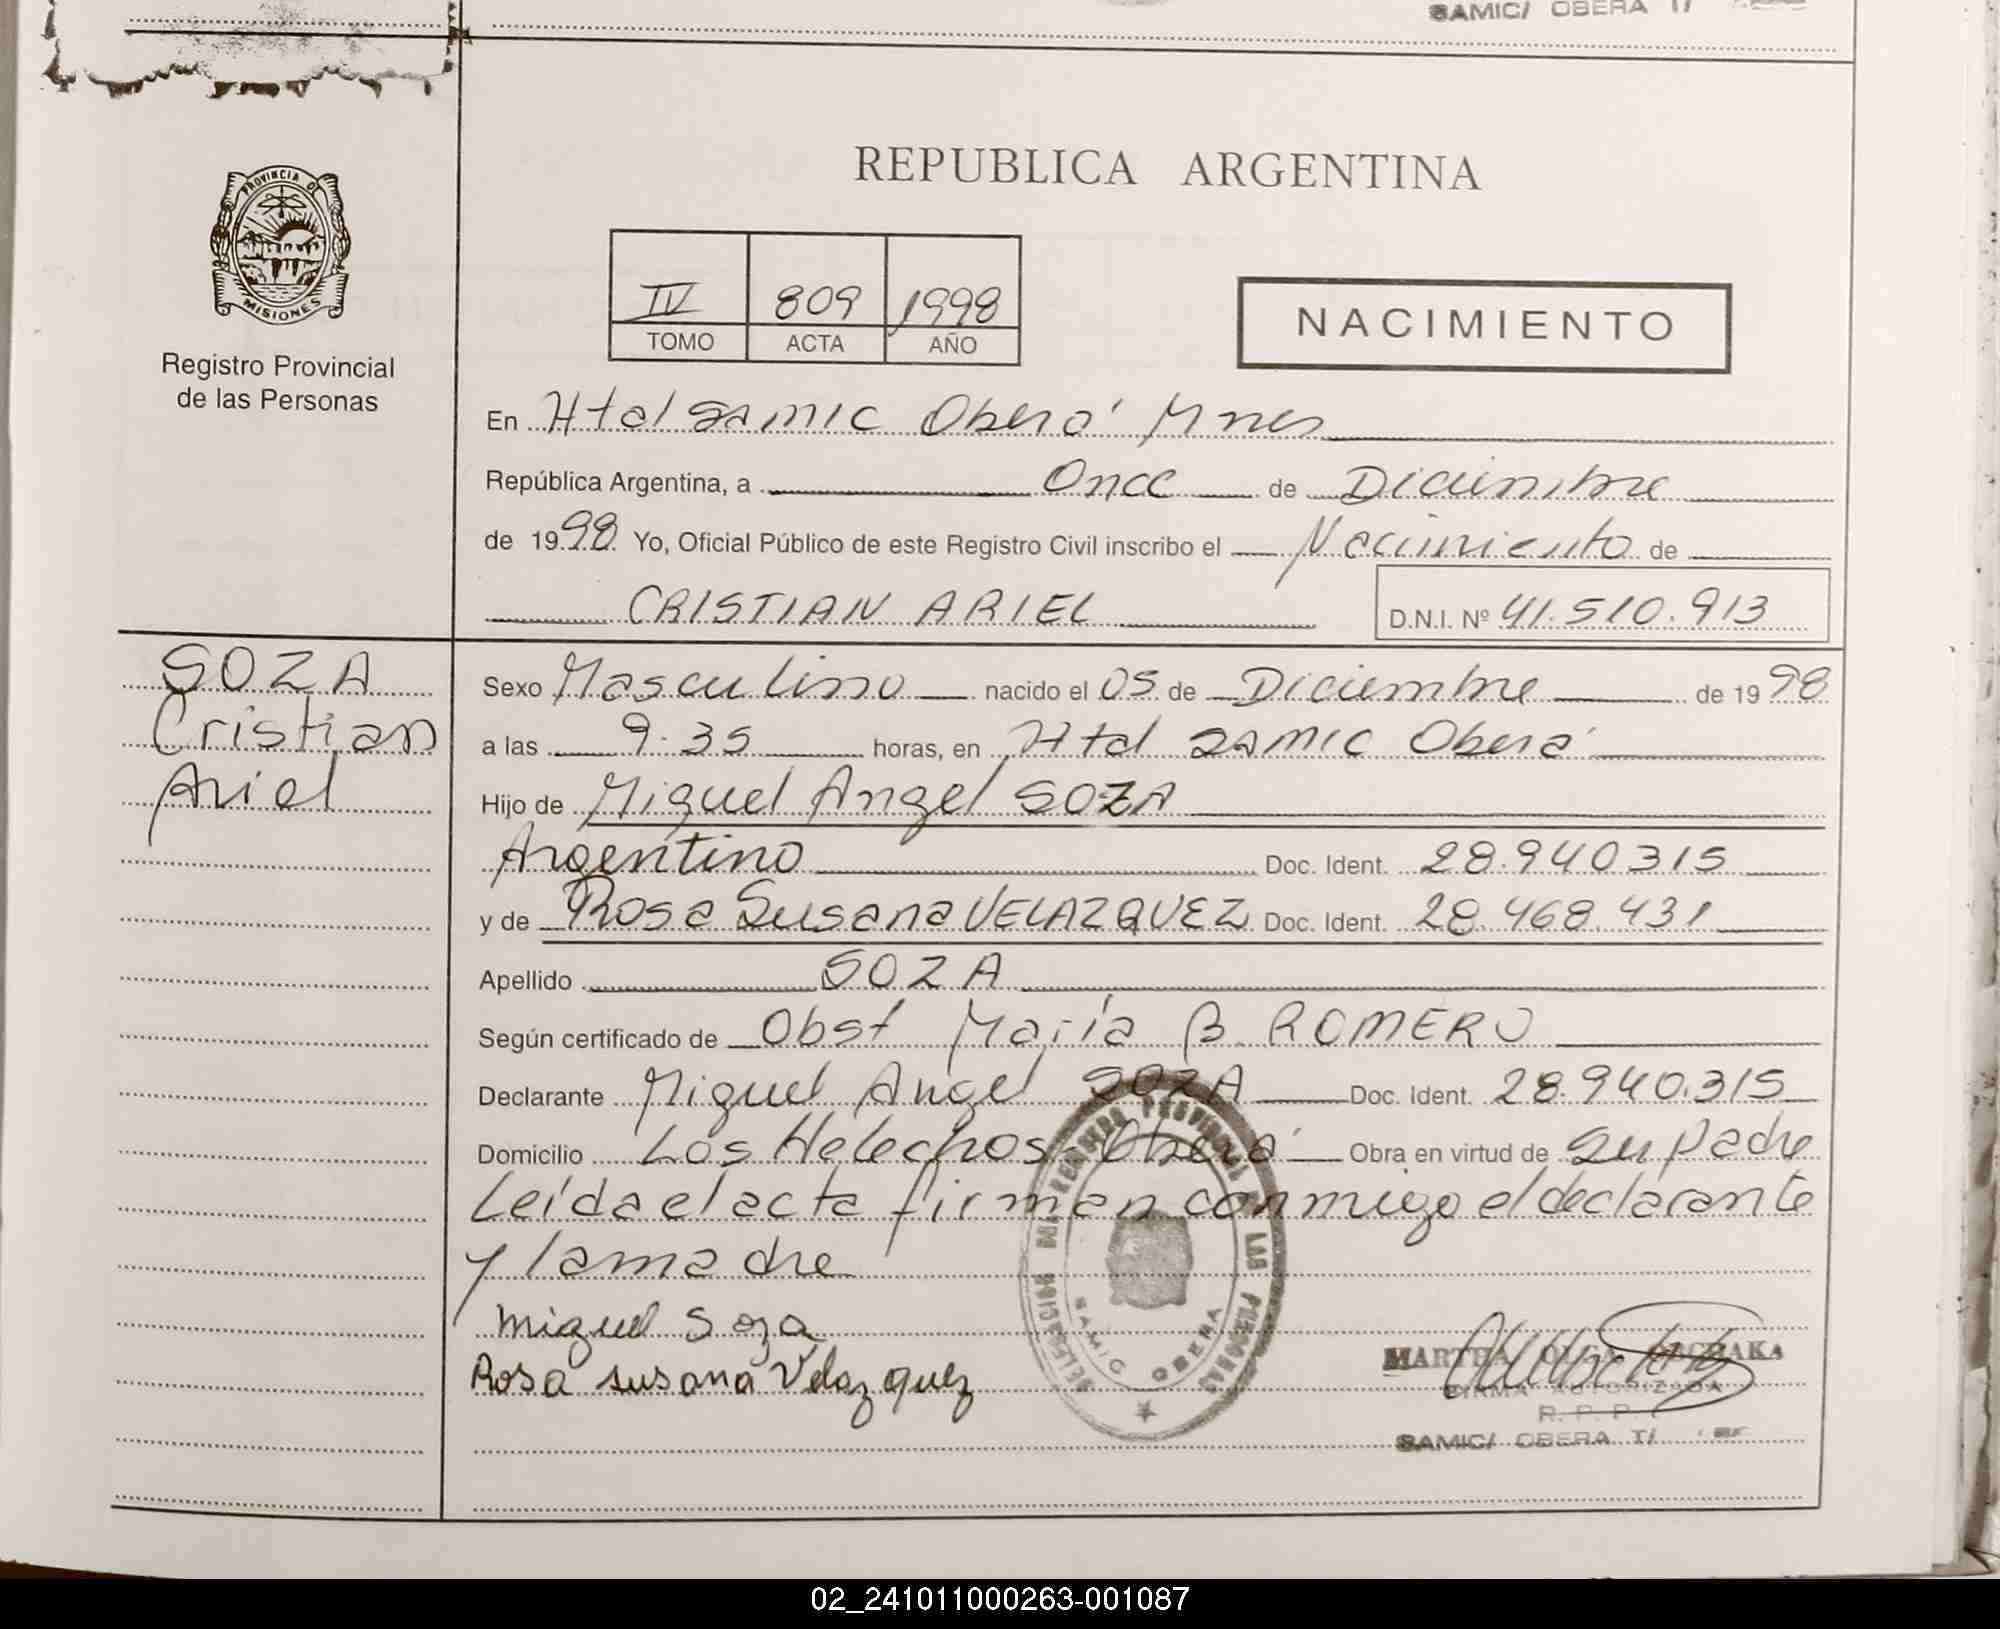 SAMIC/ OBERA T/
REPUBLICA ARGENTINA
PROVINCIA DE
MISIONES
Registro Provincial
de las Personas
IV 809 1998
TOMO ACTA AÑO
NACIMIENTO
En Htal SAMIC Oberá Mnes
República Argentina, a Once de Diciembre
de 1998 Yo, Oficial Público de este Registro Civil inscribo el Nacimiento de
CRISTIAN ARIEL D.N.I. Nº 41.510.913
SOZA
Cristian
Ariel
Sexo Masculino nacido el 05 de Diciembre de 1998
a las 9.35 horas, en Htal SAMIC Oberá
Hijo de Miguel Angel SOZA
Argentino Doc. Ident. 28.940315
y de Rosa Susana VELAZQUEZ Doc. Ident. 28.468.431
Apellido SOZA
Según certificado de Obst María B ROMERO
Declarante Miguel Angel SOZA Doc. Ident. 28.940.315
Domicilio Los Helechos Oberá Obra en virtud de su padre
Leída el acta firman conmigo el declarante
y la madre
Miguel Soza
Rosa Susana Velazquez
REGISTRO PROVINCIAL DE LAS PERSONAS
SAMIC OBERA
MARTHA OLGA
FIRMA AUTORIZADA
R. P. P.
SAMIC/ OBERA T/
02_241011000263-001087